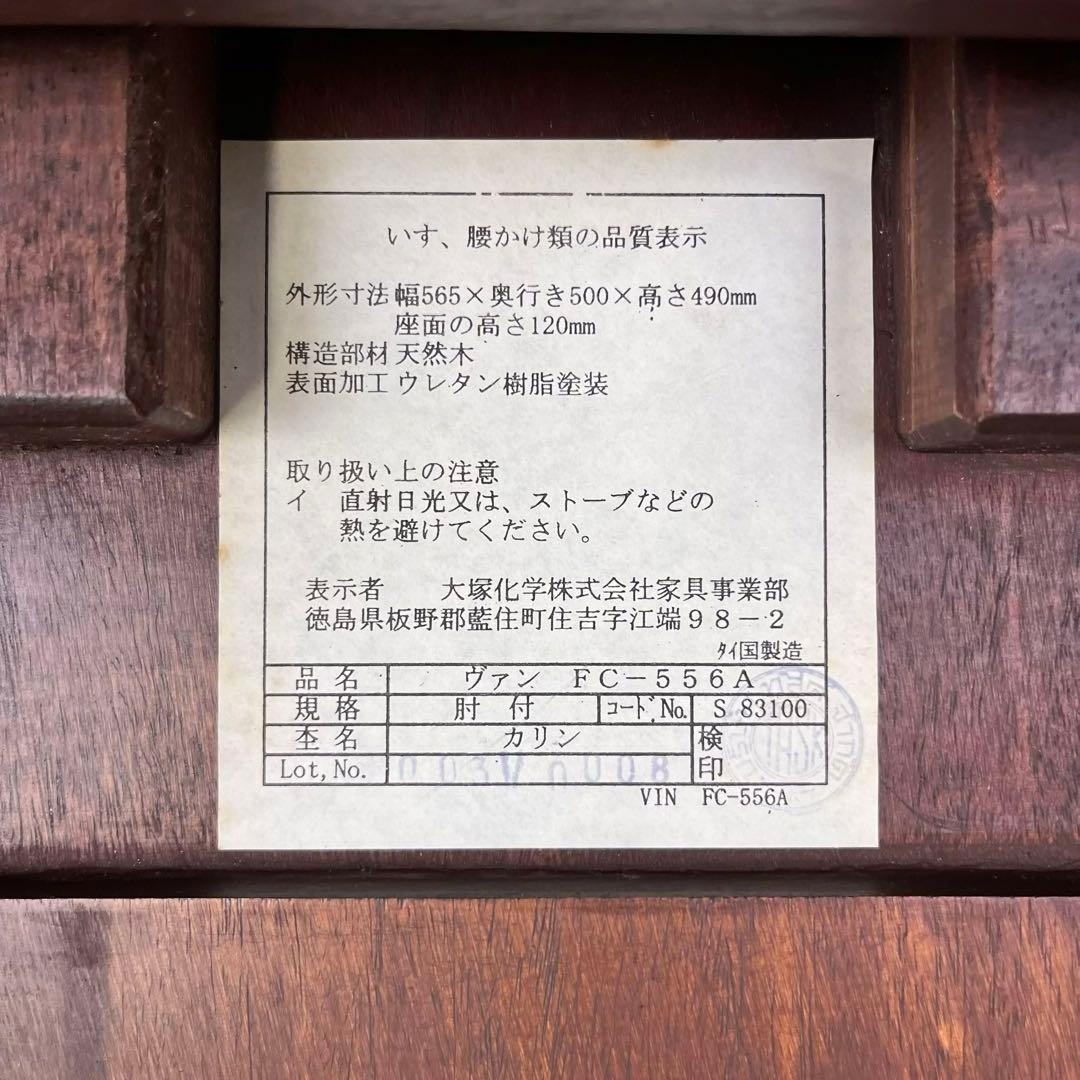 いす、腰かけ類の品質表示
外形寸法 幅565×奥行き500×高さ490mm
座面の高さ120mm
構造部材 天然木
表面加工 ウレタン樹脂塗装
取り扱い上の注意
イ 直射日光又は、ストーブなどの
熱を避けてください。
表示者 大塚化学株式会社家具事業部
徳島県板野郡藍住町住吉字江端98-2
ﾀｲ国製造
品名 ヴァン FC-556A
規格 肘付 ｺｰﾄﾞ,No. S 83100
杢名 カリン 検
Lot,No. 003V0008 印
VIN FC-556A